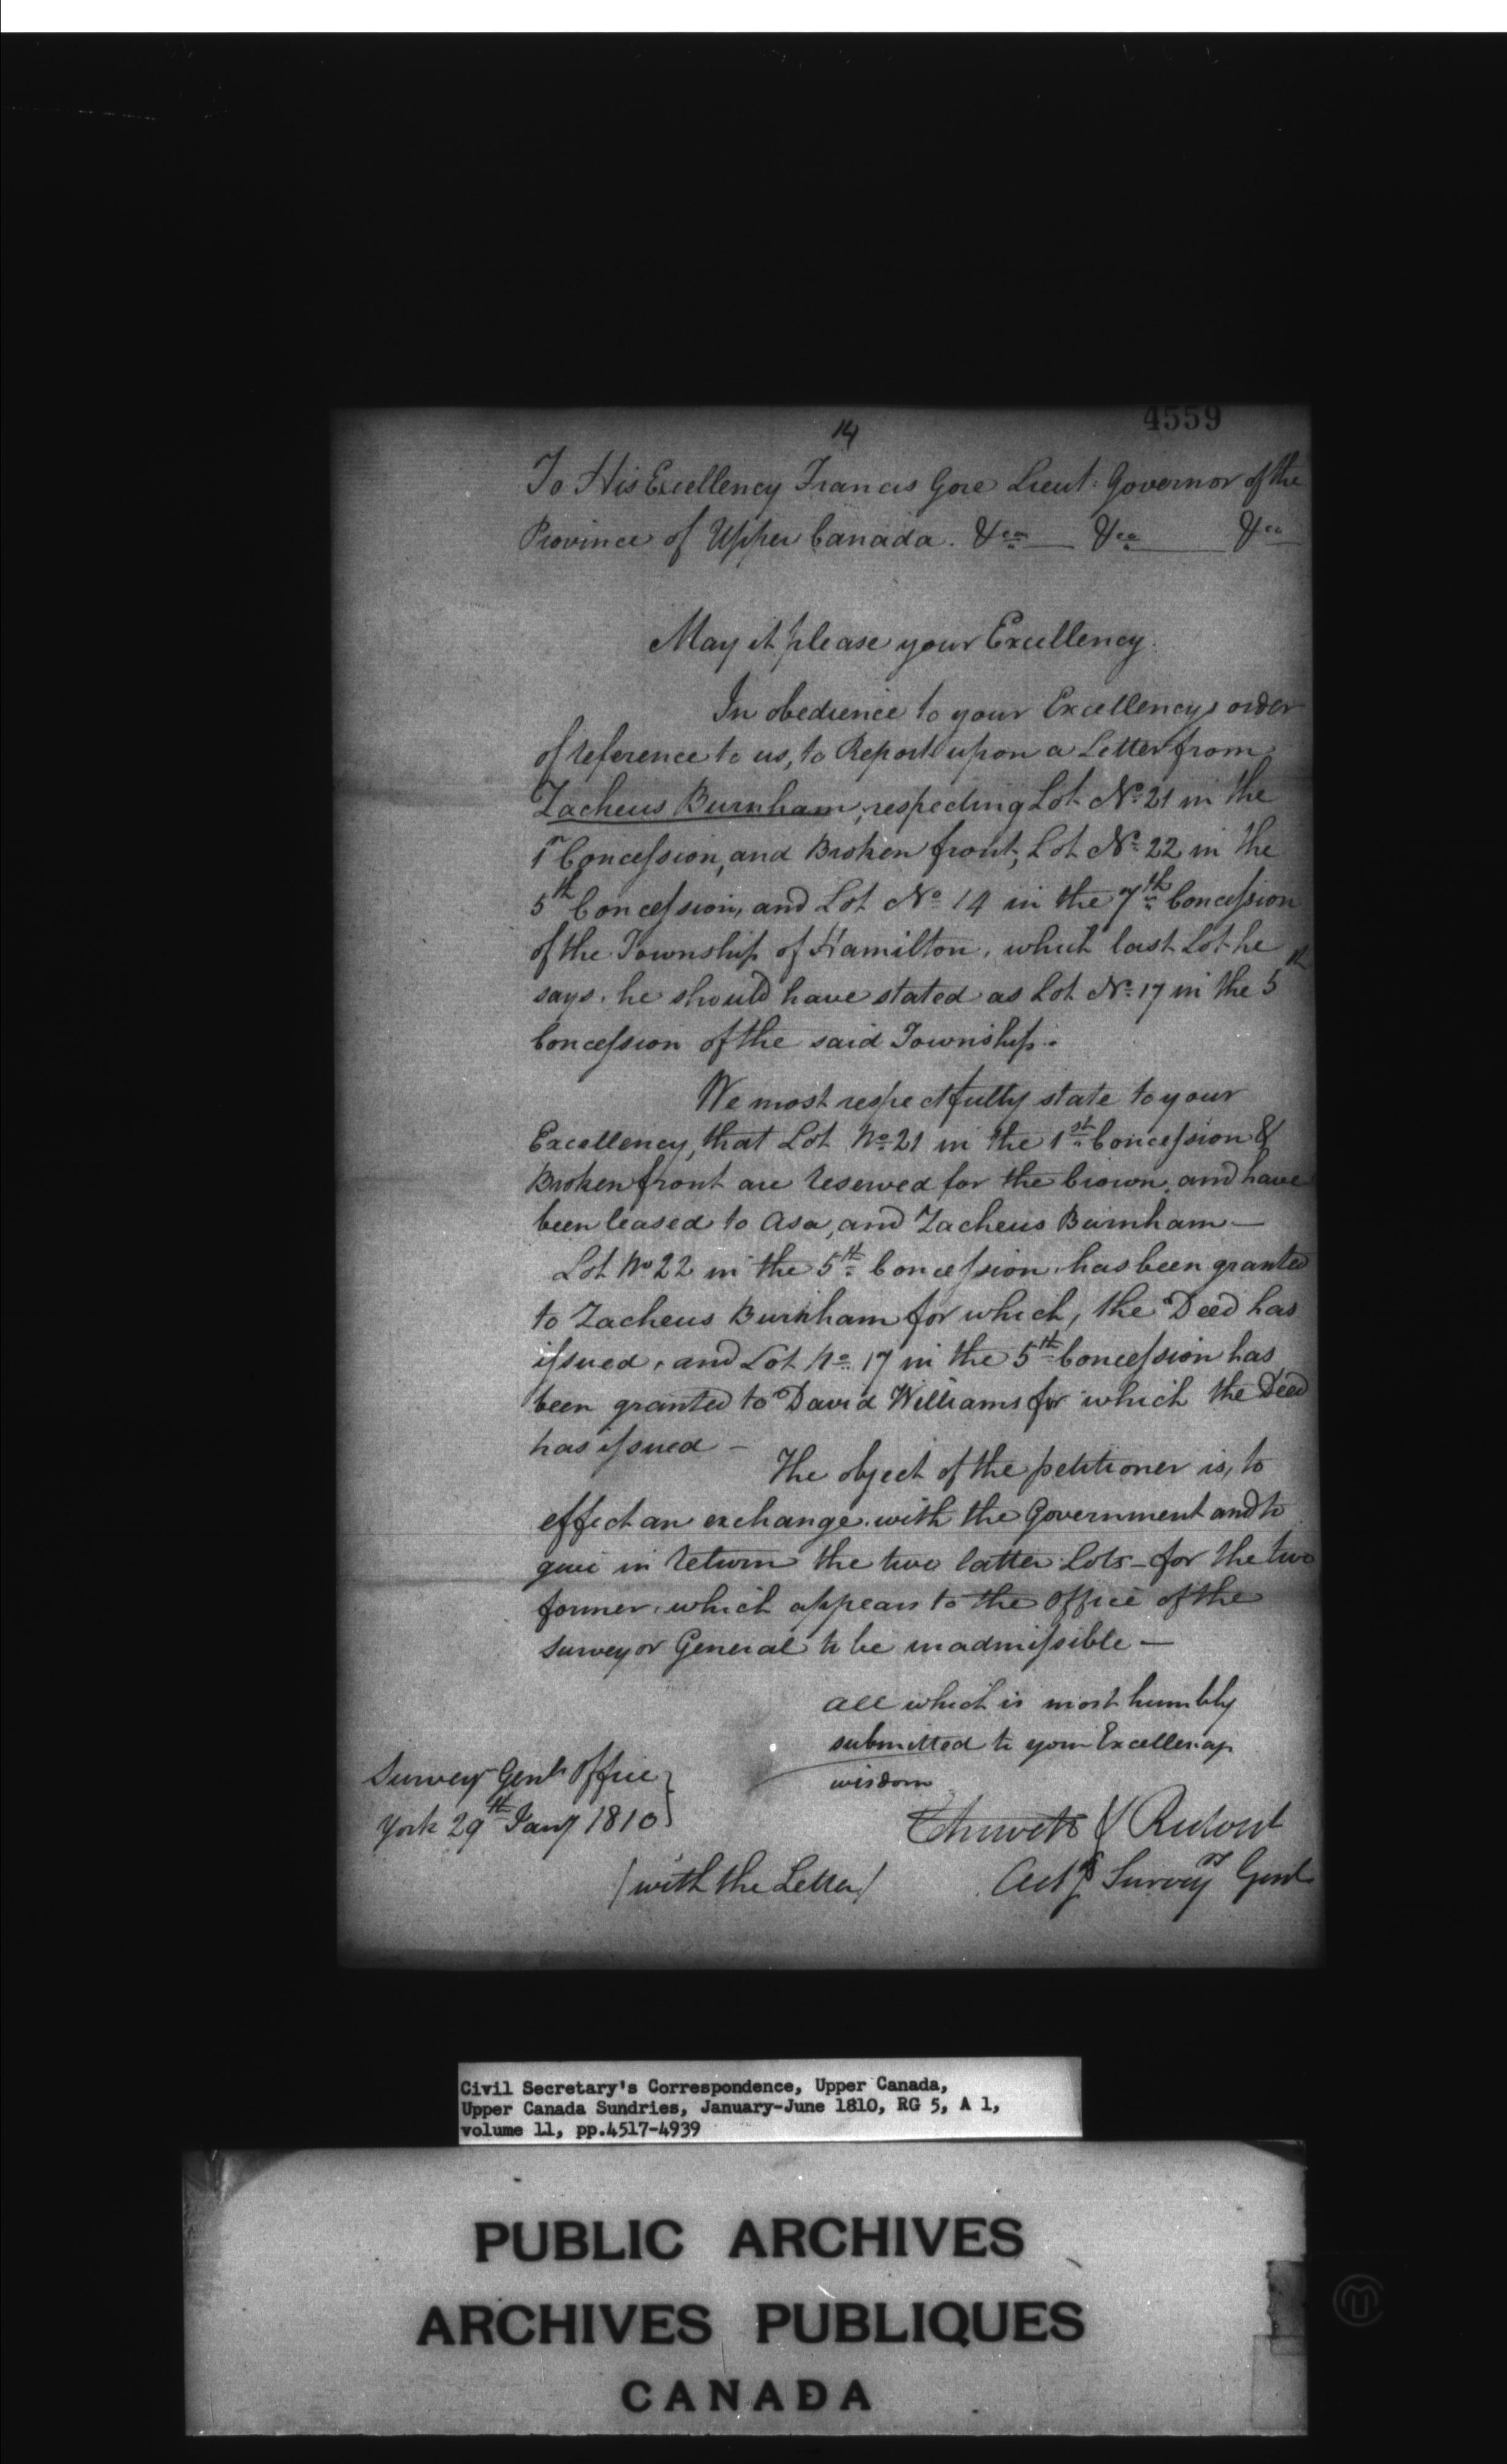 14
4559
To His Excellency Francis Gore Lieut: Governor of the
Province of Upper Canada. &ca &ca &ca
May it please your Excellency.
In obedience to your Excellencys order
of reference to us, to Report upon a Letter from
Zacheus Burnham, respecting Lot No. 21 in the
1st Concession, and Broken front, Lot No. 22 in the
5th Concession, and Lot No 14 in the 7th Concession
of the Township of Hamilton, which last Lot he
says, he should have stated as Lot No. 17 in the 5th
Concession of the said Township.
We most respectfully state to your
Excellency, that Lot No. 21 in the 1st Concession &
Broken front are reserved for the Crown, and have
been leased to Asa, and Zacheus Burnham —
Lot No 22 in the 5th Concession, has been granted
to Zacheus Burnham for which, the Deed has
issued, and Lot No. 17 in the 5th Concession has
been granted to David Williams for which the Deed
has issued —
The object of the petitioner is, to
effect an exchange with the Government and to
give in return the two latter Lots - for the two
former, which appears to the Office of the
Surveyor General to be inadmissible —
All which is most humbly
submitted to your Excellencys
wisdom
Surveyr Genls Office
York 29th Jany 1810
Chewett & Ridout
Actg Surveyrs Genl
(with the Letter)
Civil Secretary's Correspondence, Upper Canada,
Upper Canada Sundries, January-June 1810, RG 5, A 1,
volume 11, pp.4517-4939
PUBLIC ARCHIVES
ARCHIVES PUBLIQUES
CANADA